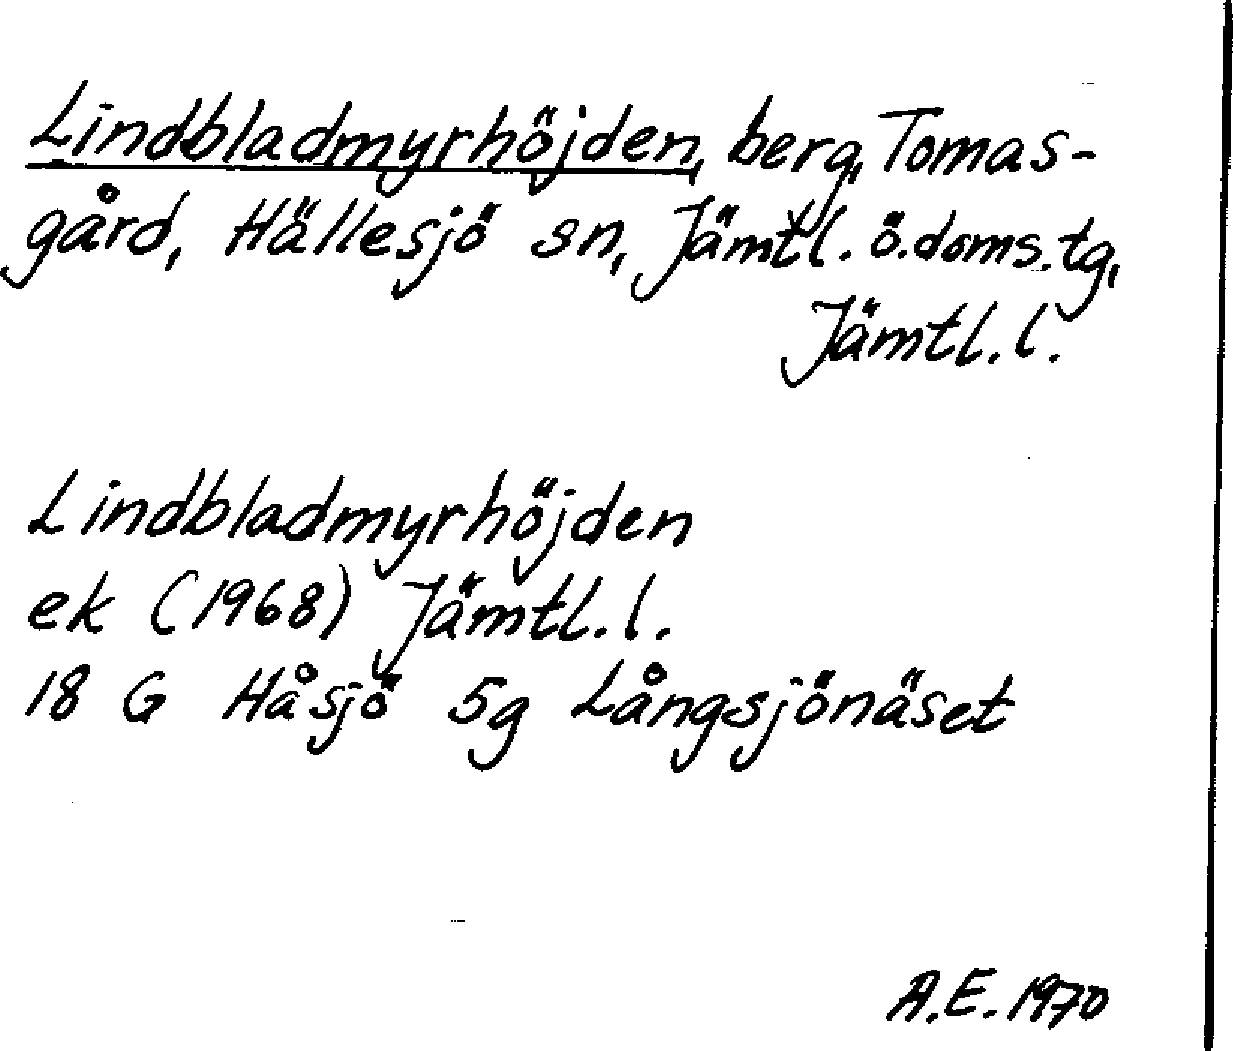 Lindbladmyrhöjden, berg, Tomas-
gård, Hällesjö sn, Jämtl. ö. doms. tg,
Jämtl. l.
Lindbladmyrhöjden
ek (1968) Jämtl. l.
18 G Håsjö 5g Långsjönäset
A.E. 1970